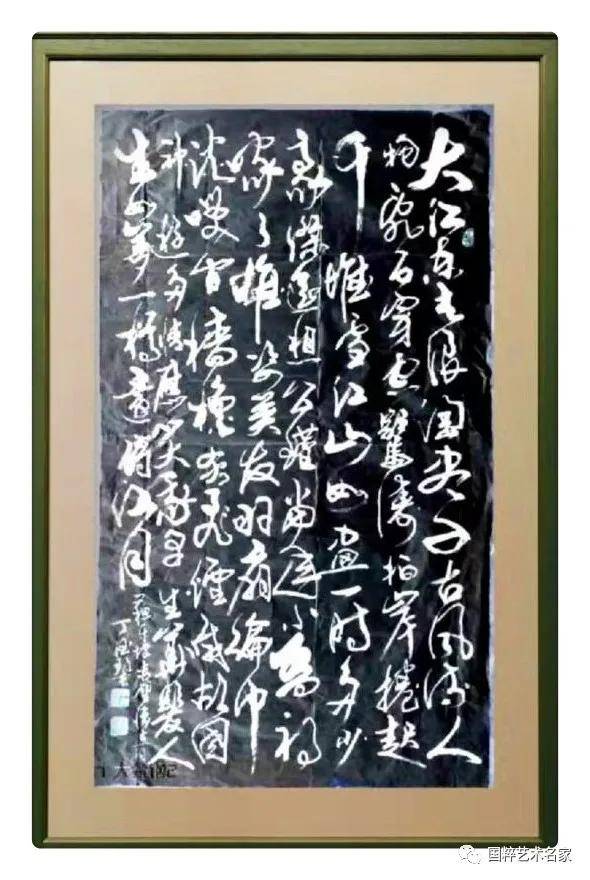 大江东去浪淘尽千古风流人
物乱石穿空驚涛拍岸捲起
千堆雪江山如画一时多少
豪傑遥想公瑾当年小乔初
嫁了雄姿英发羽扇纶巾
谈笑间樯橹灰飞煙灭故国
神游多情应笑我早生华髮人
生如夢一樽还酹江月
国粹艺术名家